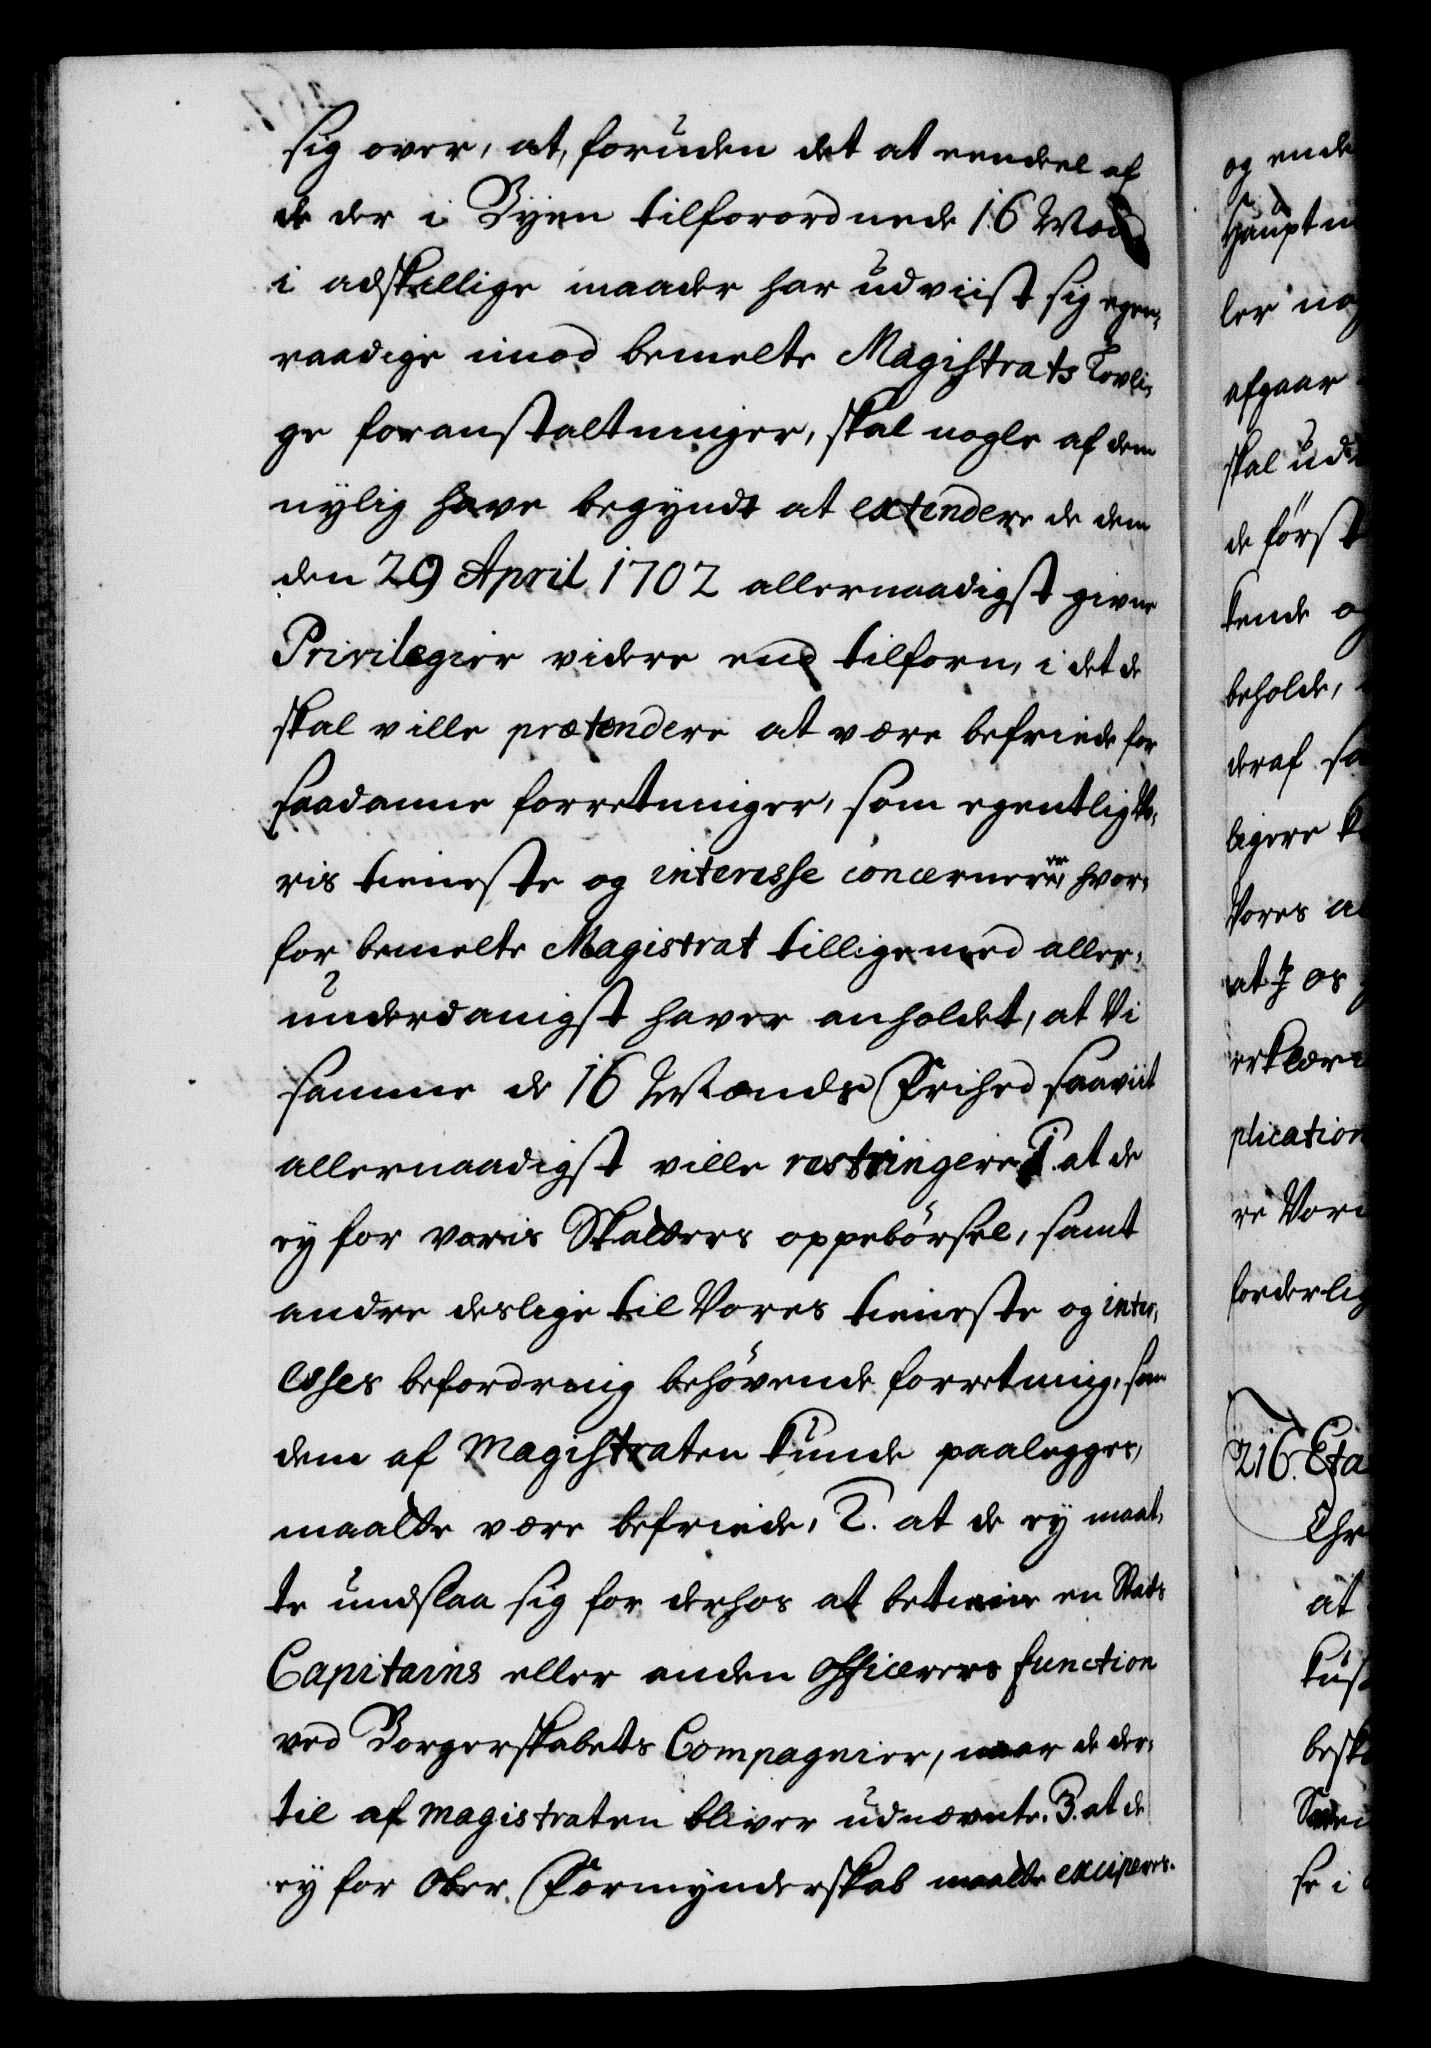 sig over, at, foruden det at eendeel af
de der i Byen tilforordnede 16 Mænd
i adskillige maader har udviist sig egen-
raadige imod bemelte Magistrats Lovli-
ge foranstaltninger, skal nogle af dem
nylig have begyndt at extendere de dem
den 29 April 1702 allernaadigst givne
Privilegier videre end tilforn, i det de
skal ville prætendere at være befriede for
saadanne forretninger, som egentlig Vo-
ris tieneste og interesse concernerer, hvor-
for bemelte Magistrat tilligemed aller-
underdanigst haver anholdet, at Vi
samme de 16 Mænds Frihed saaviit
allernaadigst ville restringere 1. at de
ey for voris Skatters oppebørsel, samt
andre deslige til Vores tieneste og inter-
esses befordring behøvende forretning, som
dem af Magistraten kunde paalegges,
maatte være befriede, 2. at de ey maat-
te undslaa sig for derhos at betiene en Stats
Capitains eller anden Officerers function
ved Borgerskabets Compagnier, naar de der-
til af magistraten bliver udnævnte. 3. at de
ey for Ober-Formynderskab maatte exciperes.
og ende
Hauptm
ler nog
afgaar
skal ud
de først
kende og
beholde,
deraf sa
ligere k
Vores al
at I os
erklæri
plication
re Vori
forderlig
216. Eta
Chr
at
kus
besk
se i